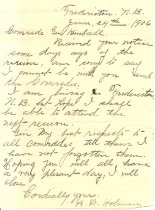 Fredericton N.B.
June 24th 1906
Comrade Geo Kimball.
Received your notice
some days ago of the
reunion, am sorry to say
I cannot be with you and
the Comrades.
I am living in Fredericton
N.B. but hope I shall
be able to attend the
next reunion.
Give My best respects to
all comrades, tell them I
have not forgotten them.
Hoping you will all have
a very pleasant day, I will
close.
Cordially yours,
Holman